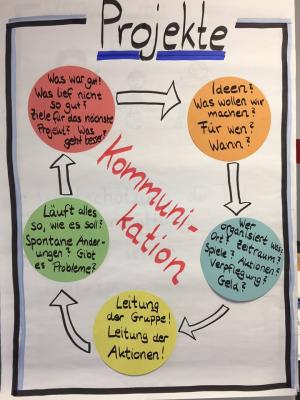 Projekte
Was war gut?
Was lief nicht
so gut?
Ziele für das nächste
Projekt? Was
geht besser?
Ideen?
Was wollen wir
machen?
Für wen?
Wann?
Kommuni-
kation
Wer
organisiert was?
Ort? Zeitraum?
Spiele? Aktionen?
Verpflegung?
Geld?
Leitung
der Gruppe!
Leitung der
Aktionen!
Läuft alles
so, wie es soll?
Spontane Änder-
ungen? Gibt
es Probleme?